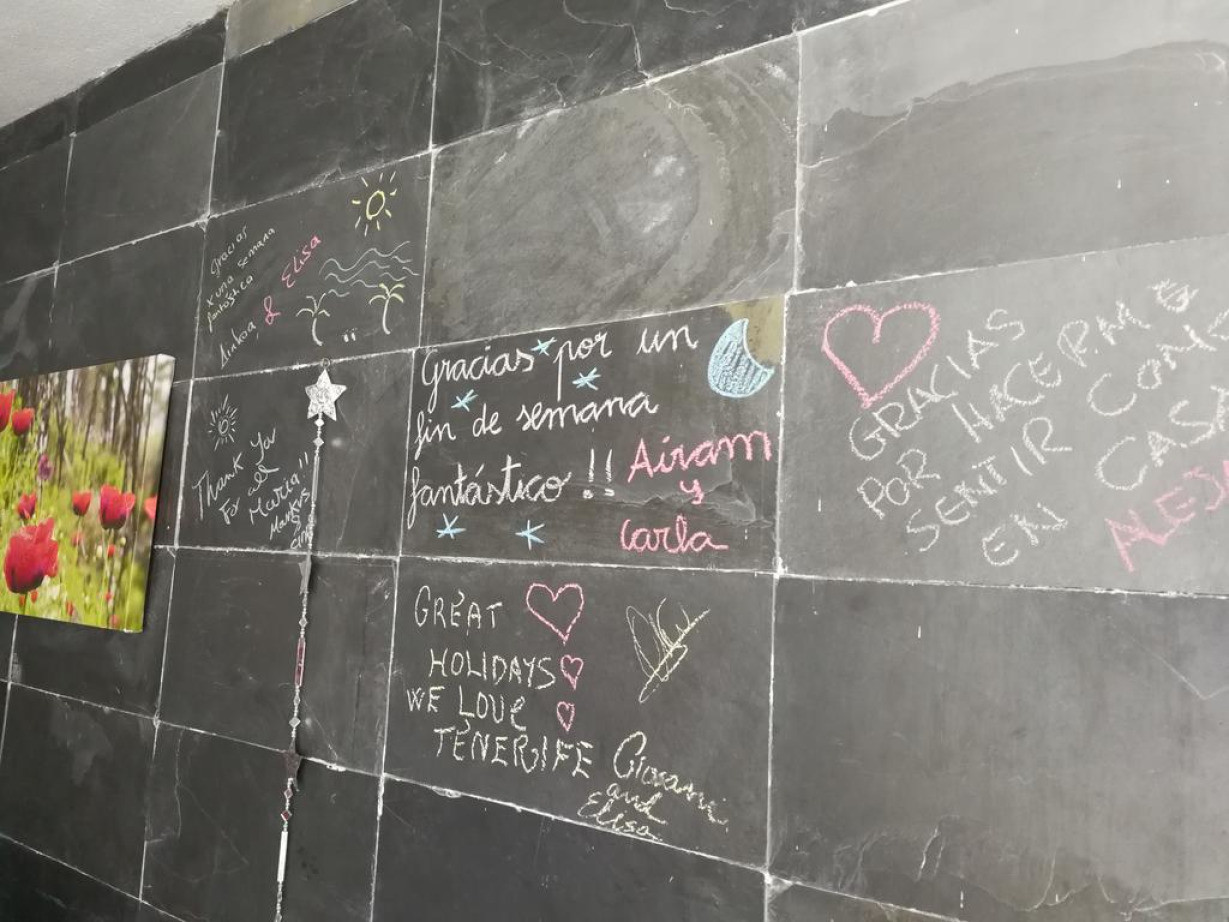 Gracias
x una semana
fantástica
Ainhoa & Elisa
Thank You
For all
Maria!!
Markus
&
Gracias por un
fin de semana
fantástico !!
Airam
y
Carla
GRACIAS
POR HACERME
SENTIR COMO
EN CASA
GREAT
HOLIDAYS
WE LOVE
TENERIFE
Giovanni
and
Elisa